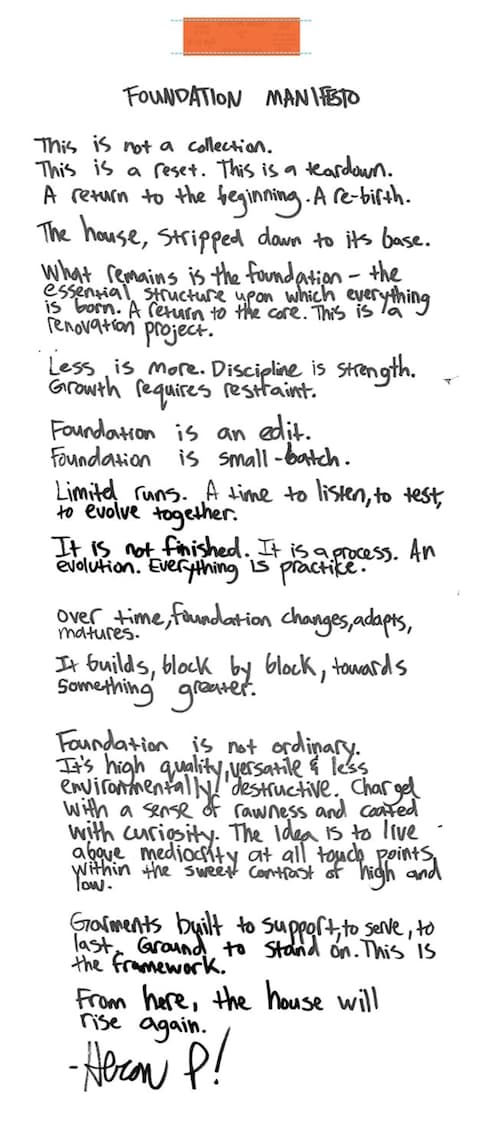 FOUNDATION MANIFESTO
This is not a collection.
This is a reset. This is a teardown.
A return to the beginning. A re-birth.
The house, stripped down to its base.
What remains is the foundation – the
essential structure upon which everything
is born. A return to the core. This is a
renovation project.
Less is more. Discipline is strength.
Growth requires restraint.
Foundation is an edit.
Foundation is small-batch.
Limitd runs. A time to listen, to test,
to evolve together.
It is not finished. It is a process. An
evolution. Everything is practike.
over time, foundation changes, adapts,
matures.
It builds, block by block, towards
something greater.
Foundation is not ordinary.
It's high quality, versatile & less
environmentally destructive. Charged
with a sense of rawness and coated
with curiosity. The idea is to live
above mediocrity at all touch points,
within the sweet contrast of high and
low.
Garments built to support, to serve, to
last. Ground to stand on. This is
the framework.
From here, the house will
rise again.
-Heron P!